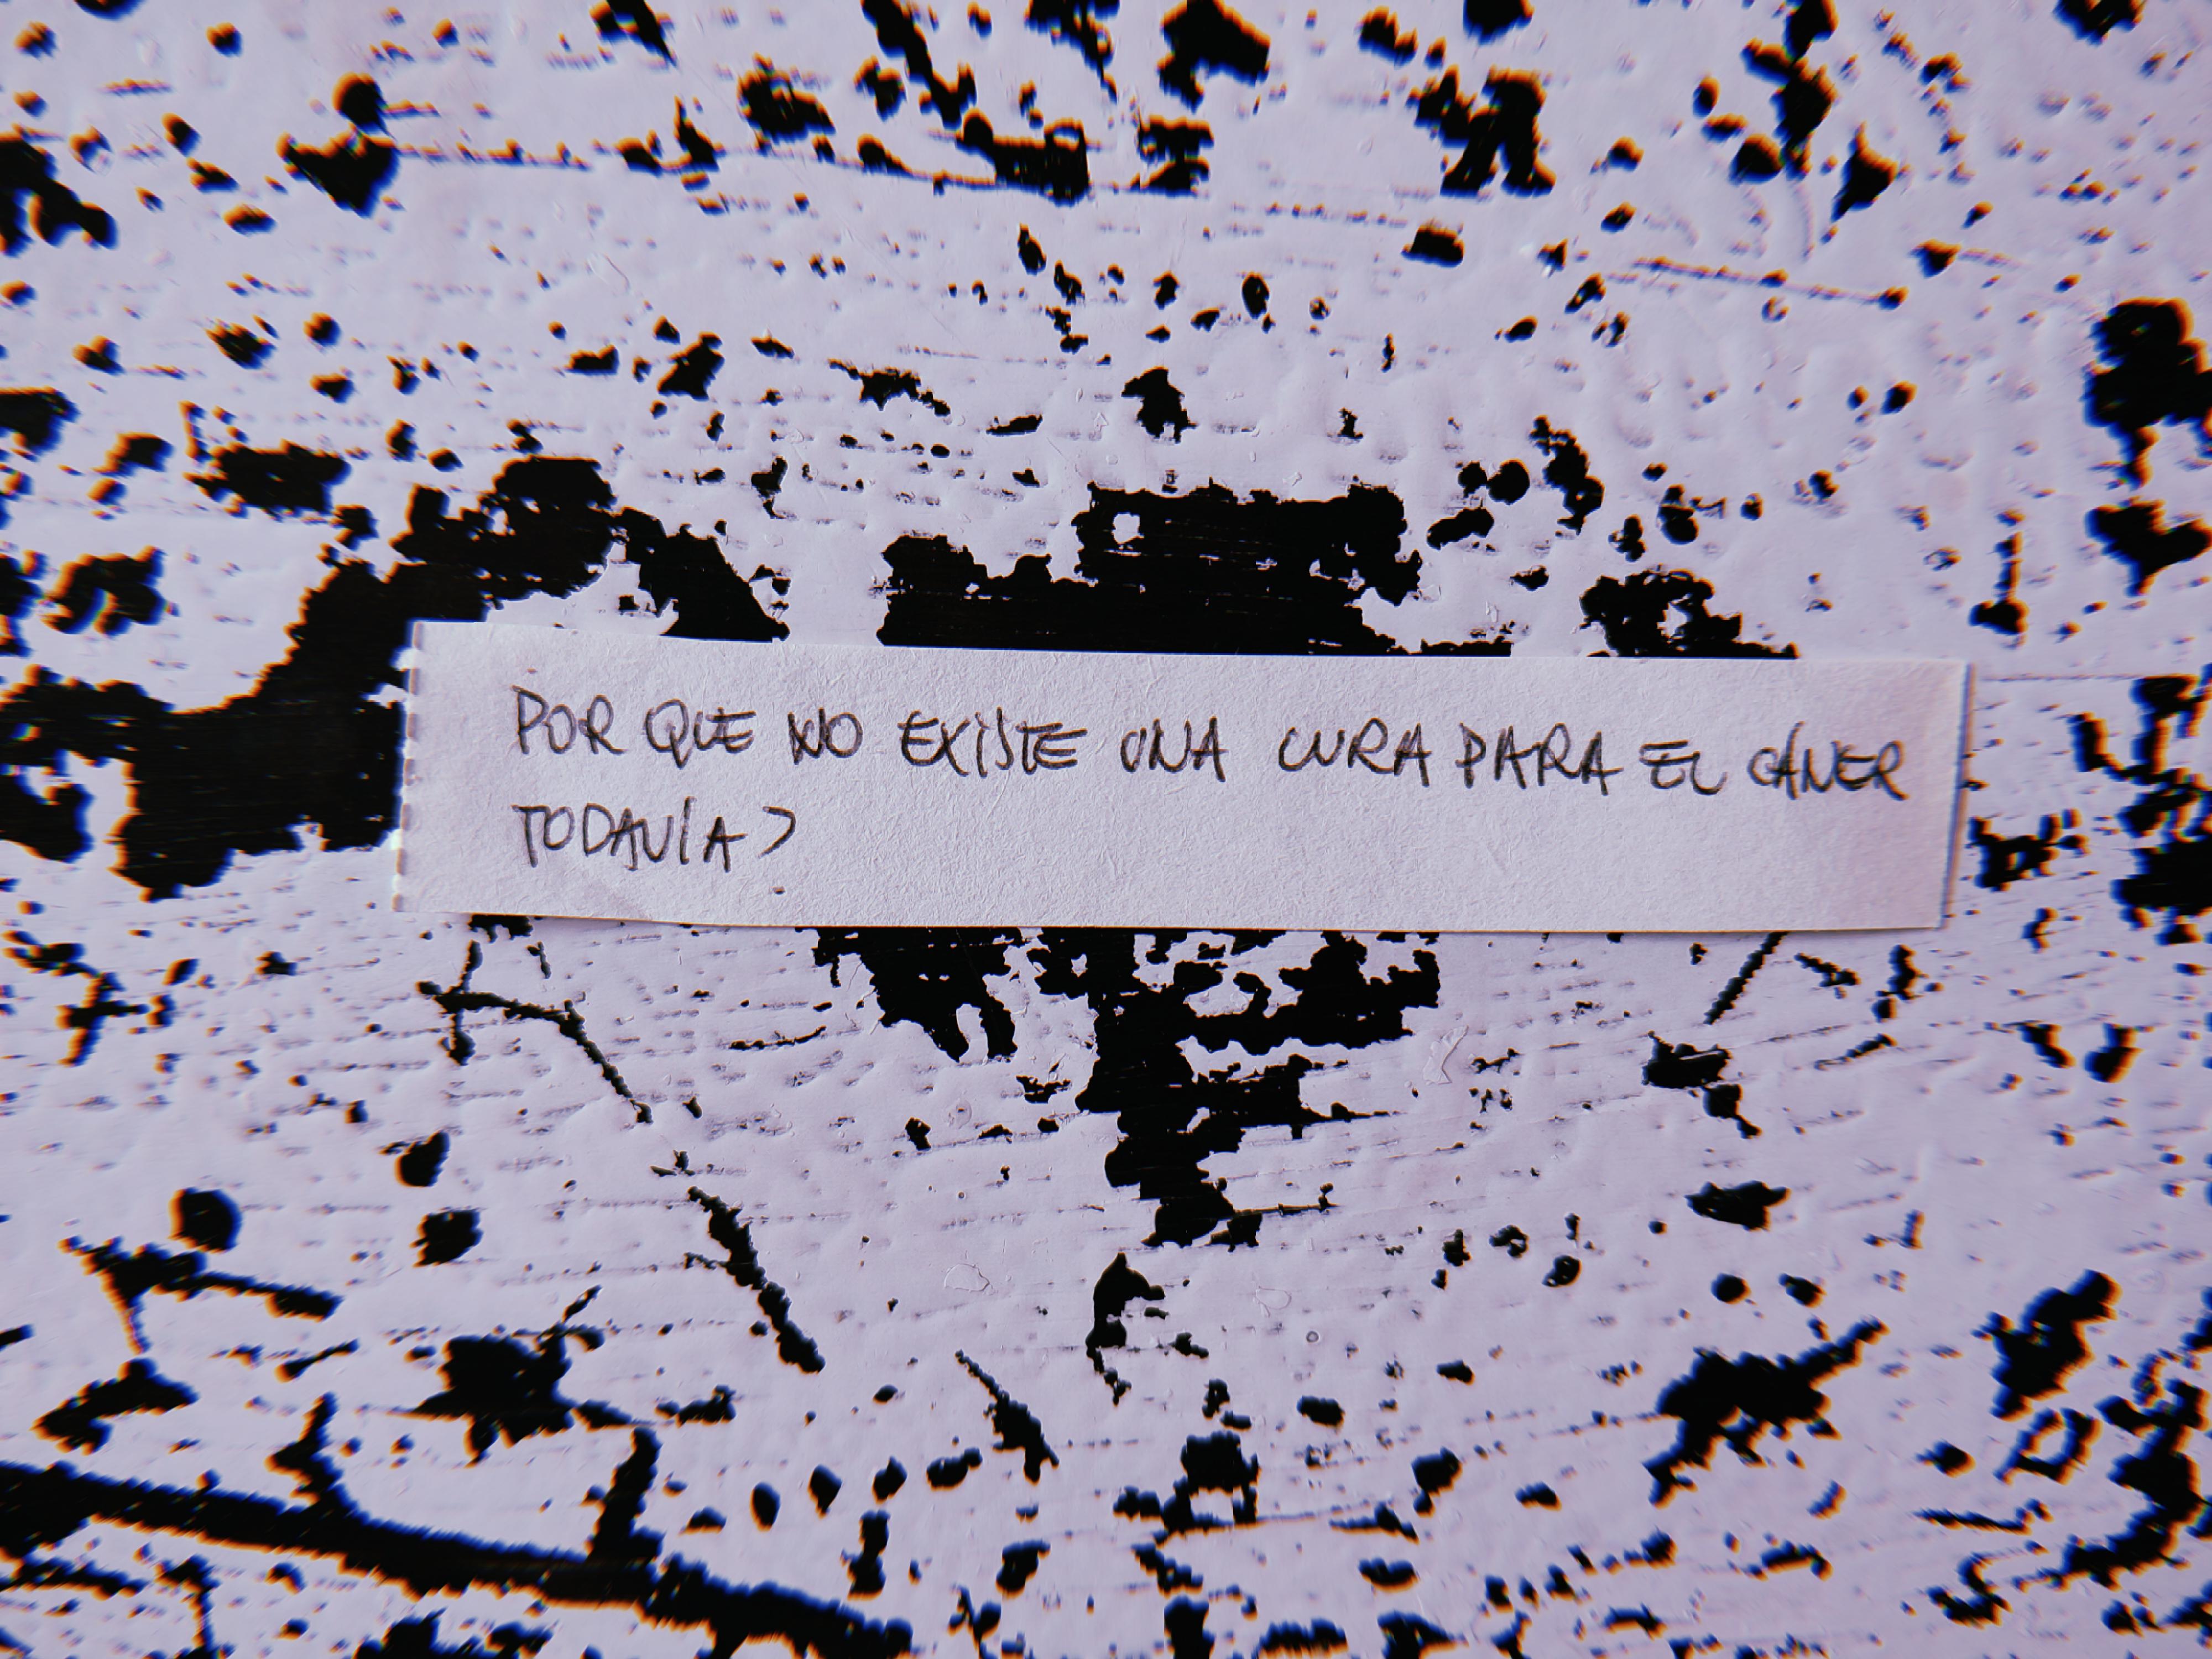 POR QUE NO EXISTE UNA CURA PARA EL CÁNER
TODAVÍA?